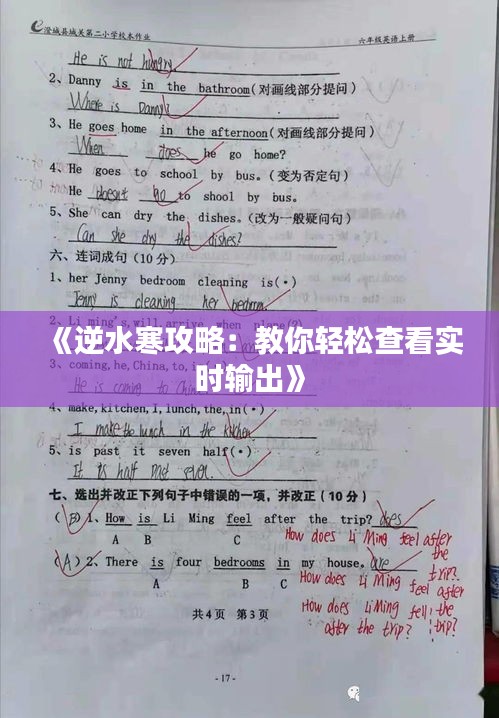 澄城县城关第二小学校本作业 六年级英语上册
He is not hungry.
2、Danny is in the bathroom(对画线部分提问)
Where is Danny?
3、He goes home in the afternoon(对画线部分提问)
When does he go home?
4、He goes to school by bus。(变为否定句)
He doesn't go to shool by bus.
5、She can dry the dishes。(改为一般疑问句)
Can she dry the dishes?
六、连词成句(10分)
1、her Jenny bedroom cleaning is(•)
Jenny is cleaning her bedroom.
《逆水寒攻略：教你轻松查看实
时输出》
3、coming,he,China,to,i
He is coming to China
4、make,kitchen,I,lunch,the,in(•)
I make the lunch in the kitchen
5、is past it seven half(•)
It is half past seven.
七、选出并改正下列句子中错误的一项，并改正(10分)
(B)1、How is Li Ming feel after the trip? does
A B C
How does Li Ming feel after
the
trip?
(A)2、There is four bedrooms in my house。are
A B C
How does Li Ming feel after
the
trip?
How does Li Ming fell
after the trip?
共4页 第3页
-17-